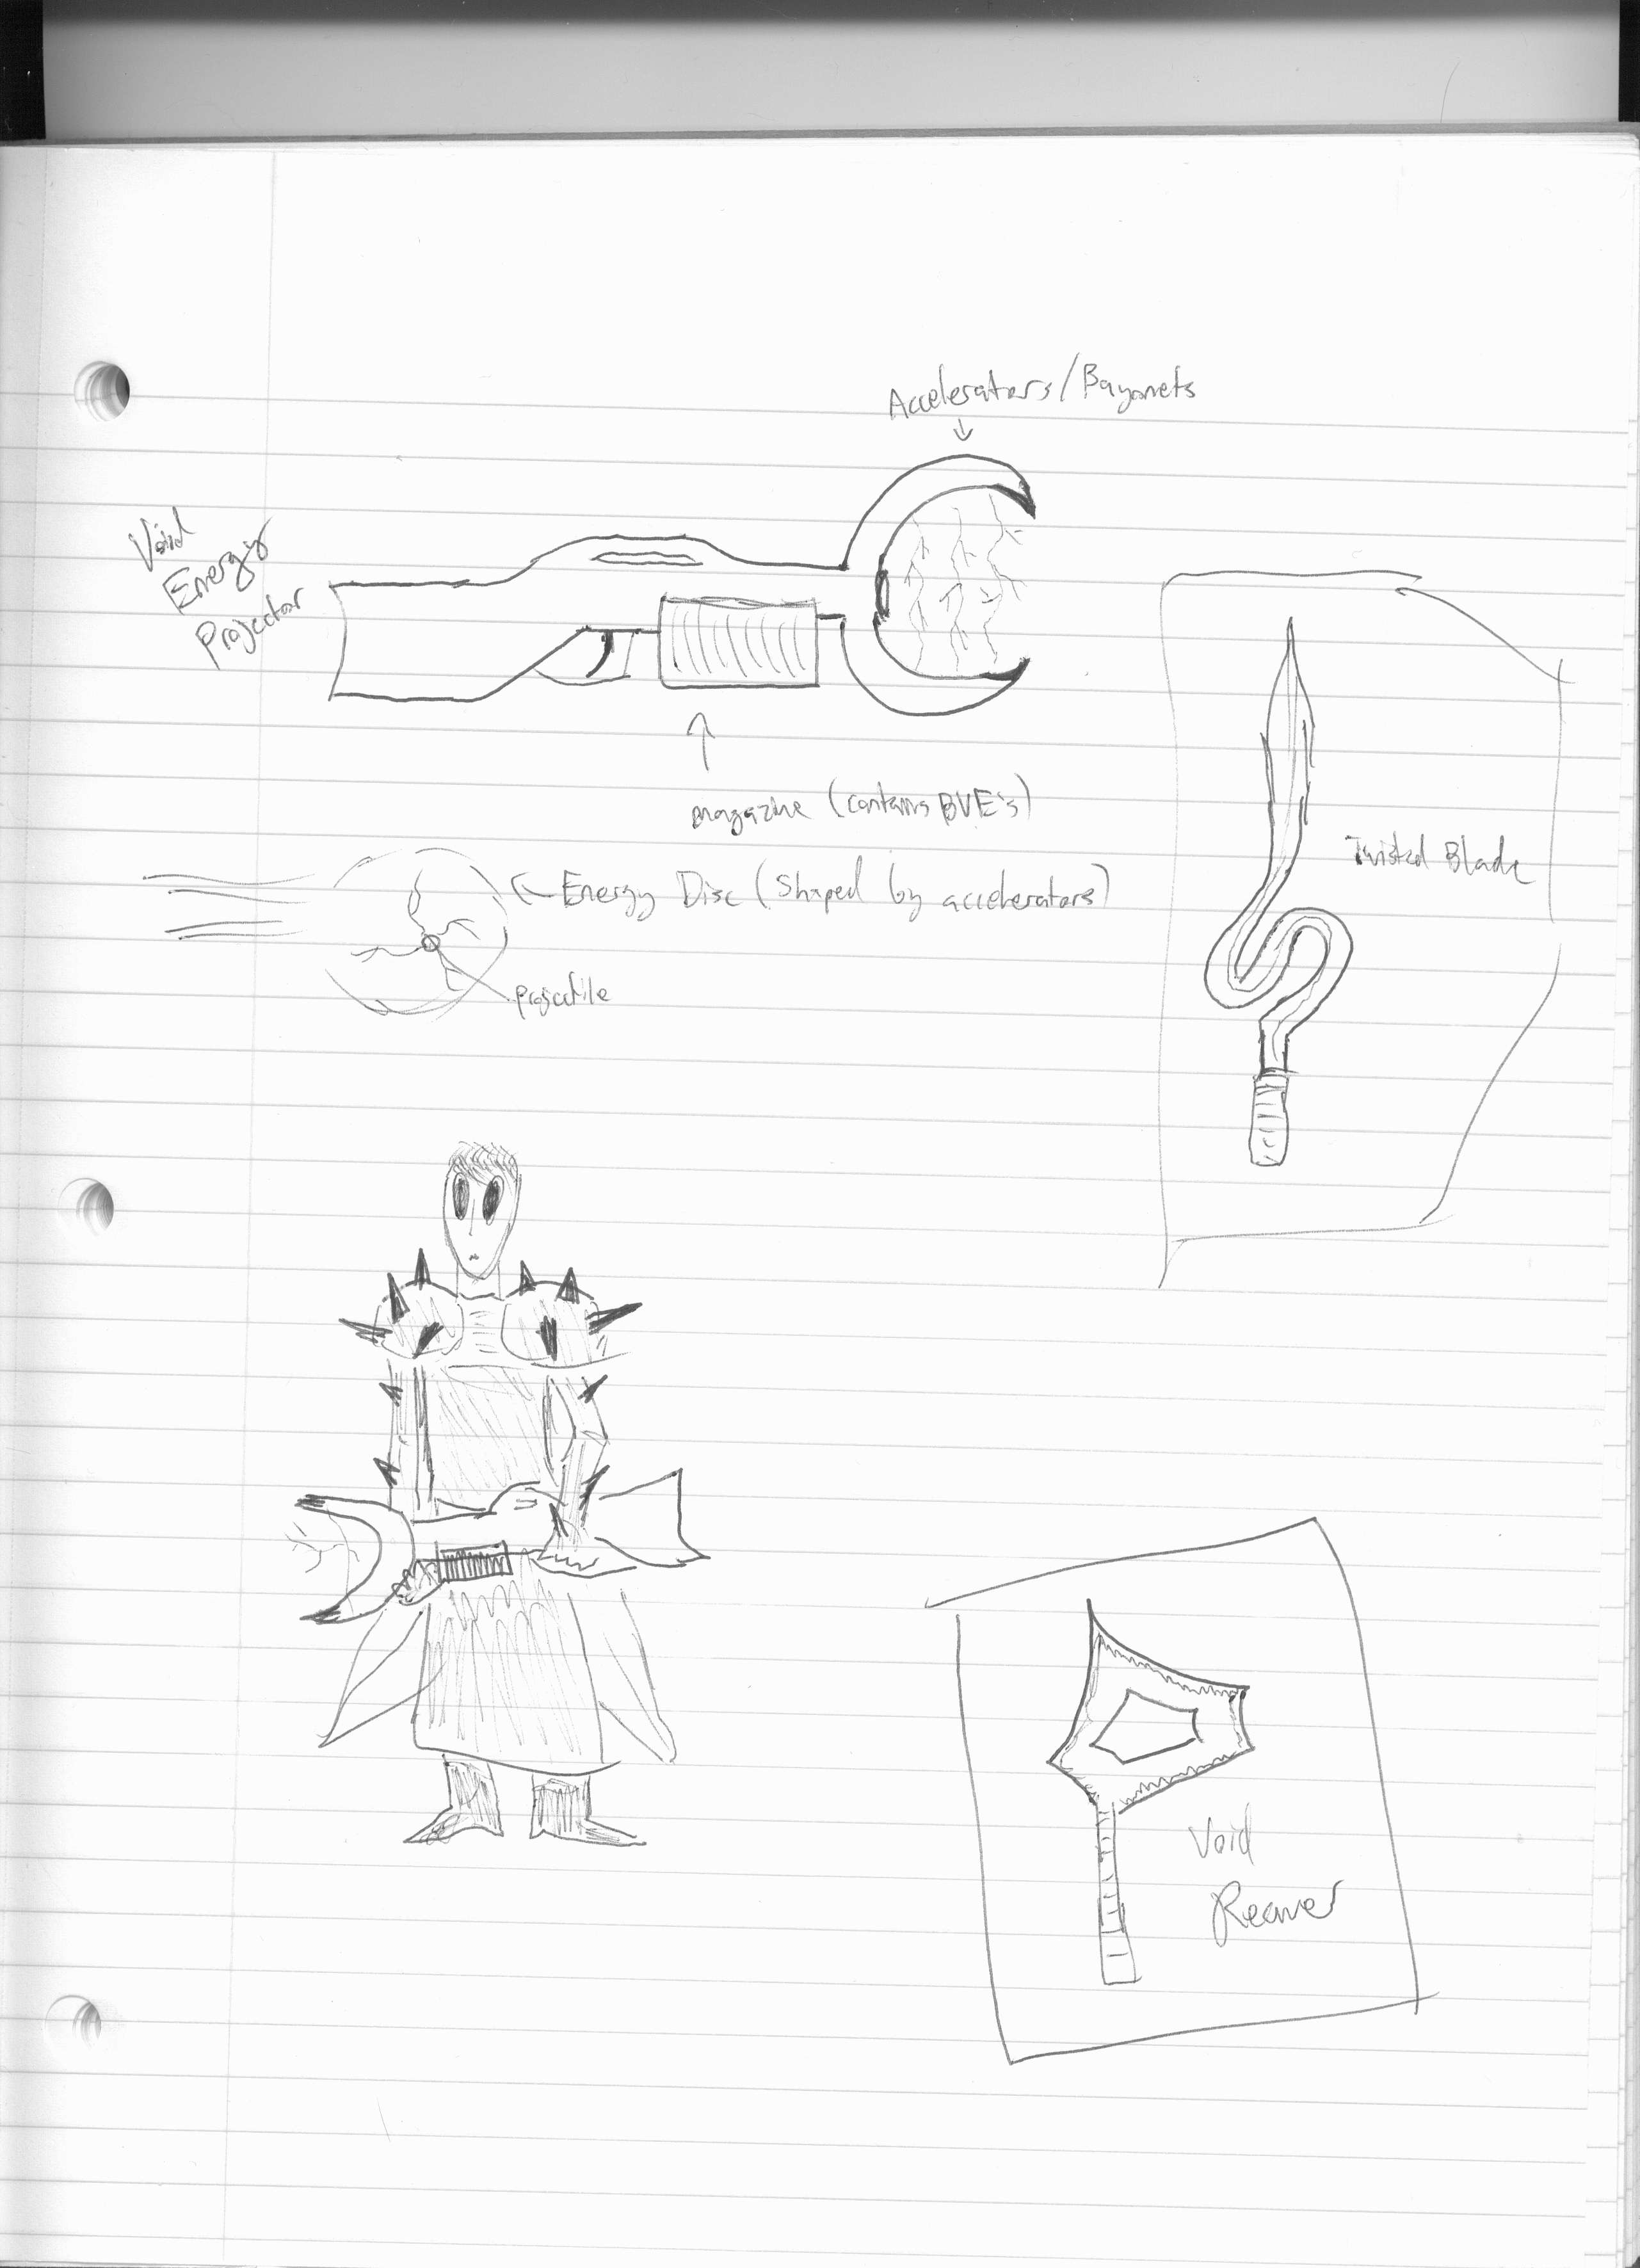 Accelerators/Bayonets
Void
Energy
Projector
magazine (contains BVE's)
Twisted Blade
Energy Disc (Shaped by accelerators)
projectile
Void
Reaver